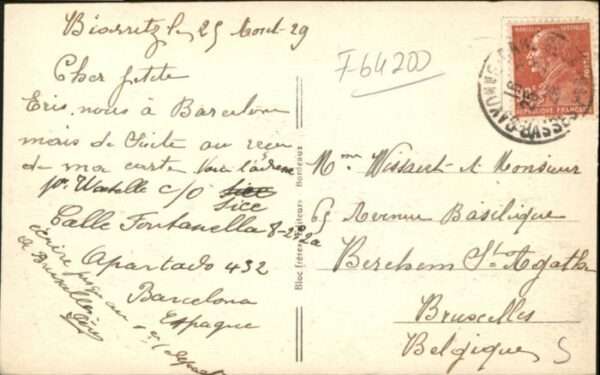 Biarritz le 25 Aout - 29
Cher petite
Eris nous à Barcelone
mais de suite au reçu
de ma carte Voici l'adresse
pr. Watelle c/o
Sice
Calle Fontanella 8-2º 2a
Apartado 432
Barcelona
Espagne
écrire
de Bruxelles
F64200
Bloc frères, Editeurs Bordeaux
REPUBLIQUE FRANÇAISE
BASSES
Mme Wissaert et Monsieur
65 Avenue Basilique
Berchem Ste Agathe
Bruxelles
Belgique
S